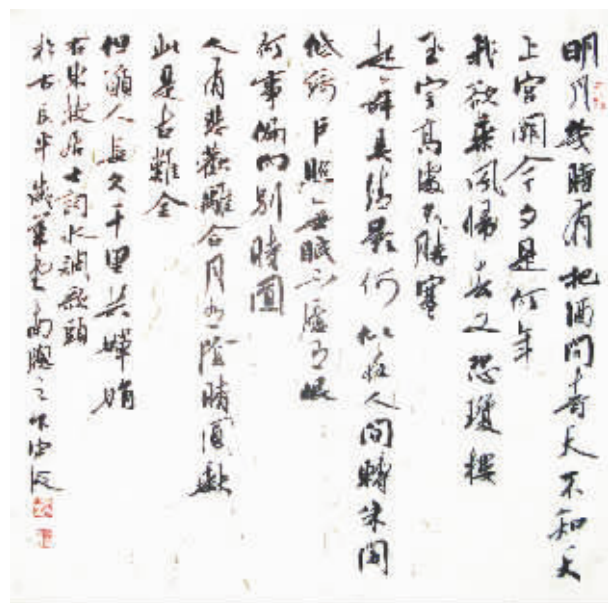 明月幾時有把酒問青天不知天
上宮闕今夕是何年
我欲乘風歸去又恐瓊樓
玉宇高處不勝寒
起舞弄清影何似在人間轉朱閣
低綺戶照無眠不應有恨
何事偏向別時圓
人有悲歡離合月有陰晴圓缺
此是古難全
但願人長久千里共嬋娟
右東坡居士詞水調歌頭